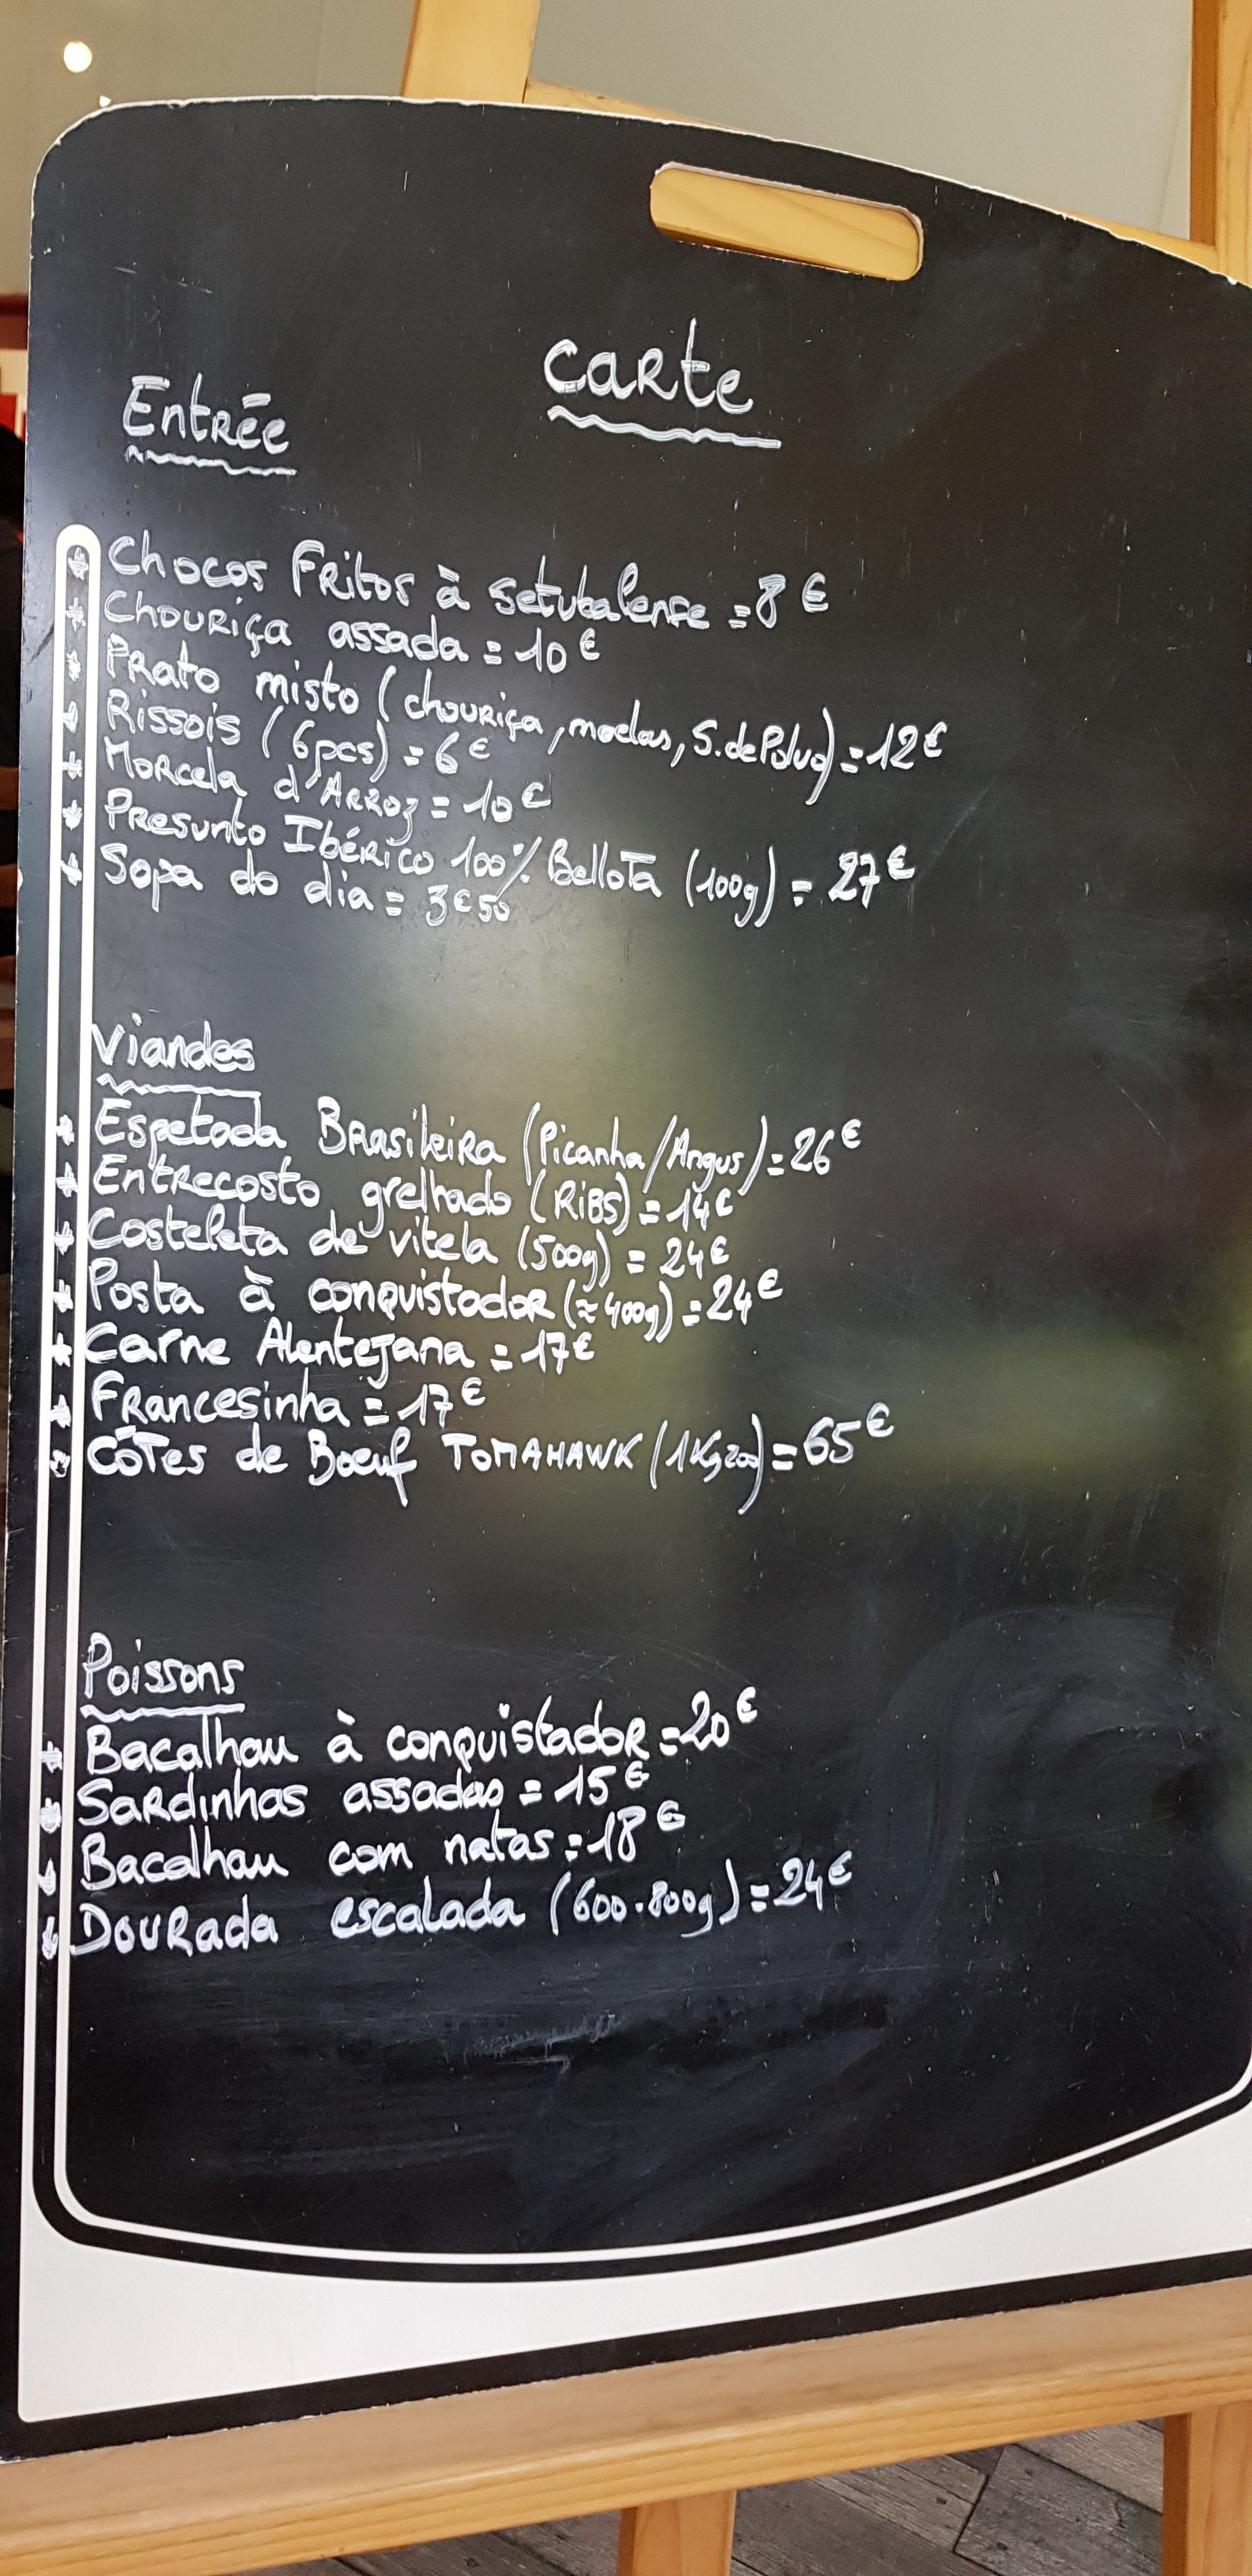 Carte
Entrée
* Chocos Fritos à setubalense = 8€
* Chouriça assada = 10€
* Prato misto (chouriça, moelas, S. de Polvo) = 12€
* Rissois (6pcs) = 6€
* Morcela d'Arroz = 10€
* Presunto Ibérico 100% Bellota (100g) = 27€
* Sopa do dia = 3€50
Viandes
* Espetada Brasileira (Picanha/Angus) = 26€
* Entrecosto grelhado (Ribs) = 14€
* Costeleta de vitela (500g) = 24€
* Posta à conquistador (≈400g) = 24€
* Carne Alentejana = 17€
* Francesinha = 17€
* Côtes de Boeuf TOMAHAWK (1Kg200) = 65€
Poissons
* Bacalhau à conquistador = 20€
* Sardinhas assadas = 15€
* Bacalhau com natas = 18€
* Dourada escalada (600-800g) = 24€